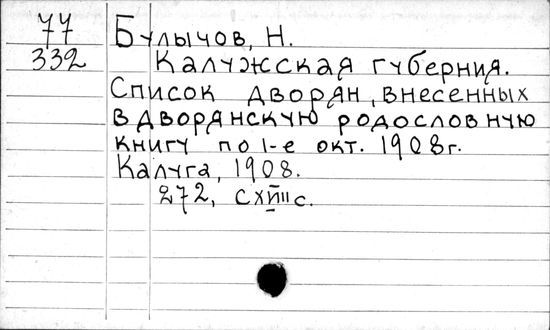 77
332
Булычов, Н.
Калужская губерния.
Список дворян, внесенных
в дворянскую родословную
книгу по 1-е окт. 1908г.
Калуга, 1908.
272, CXVIII с.